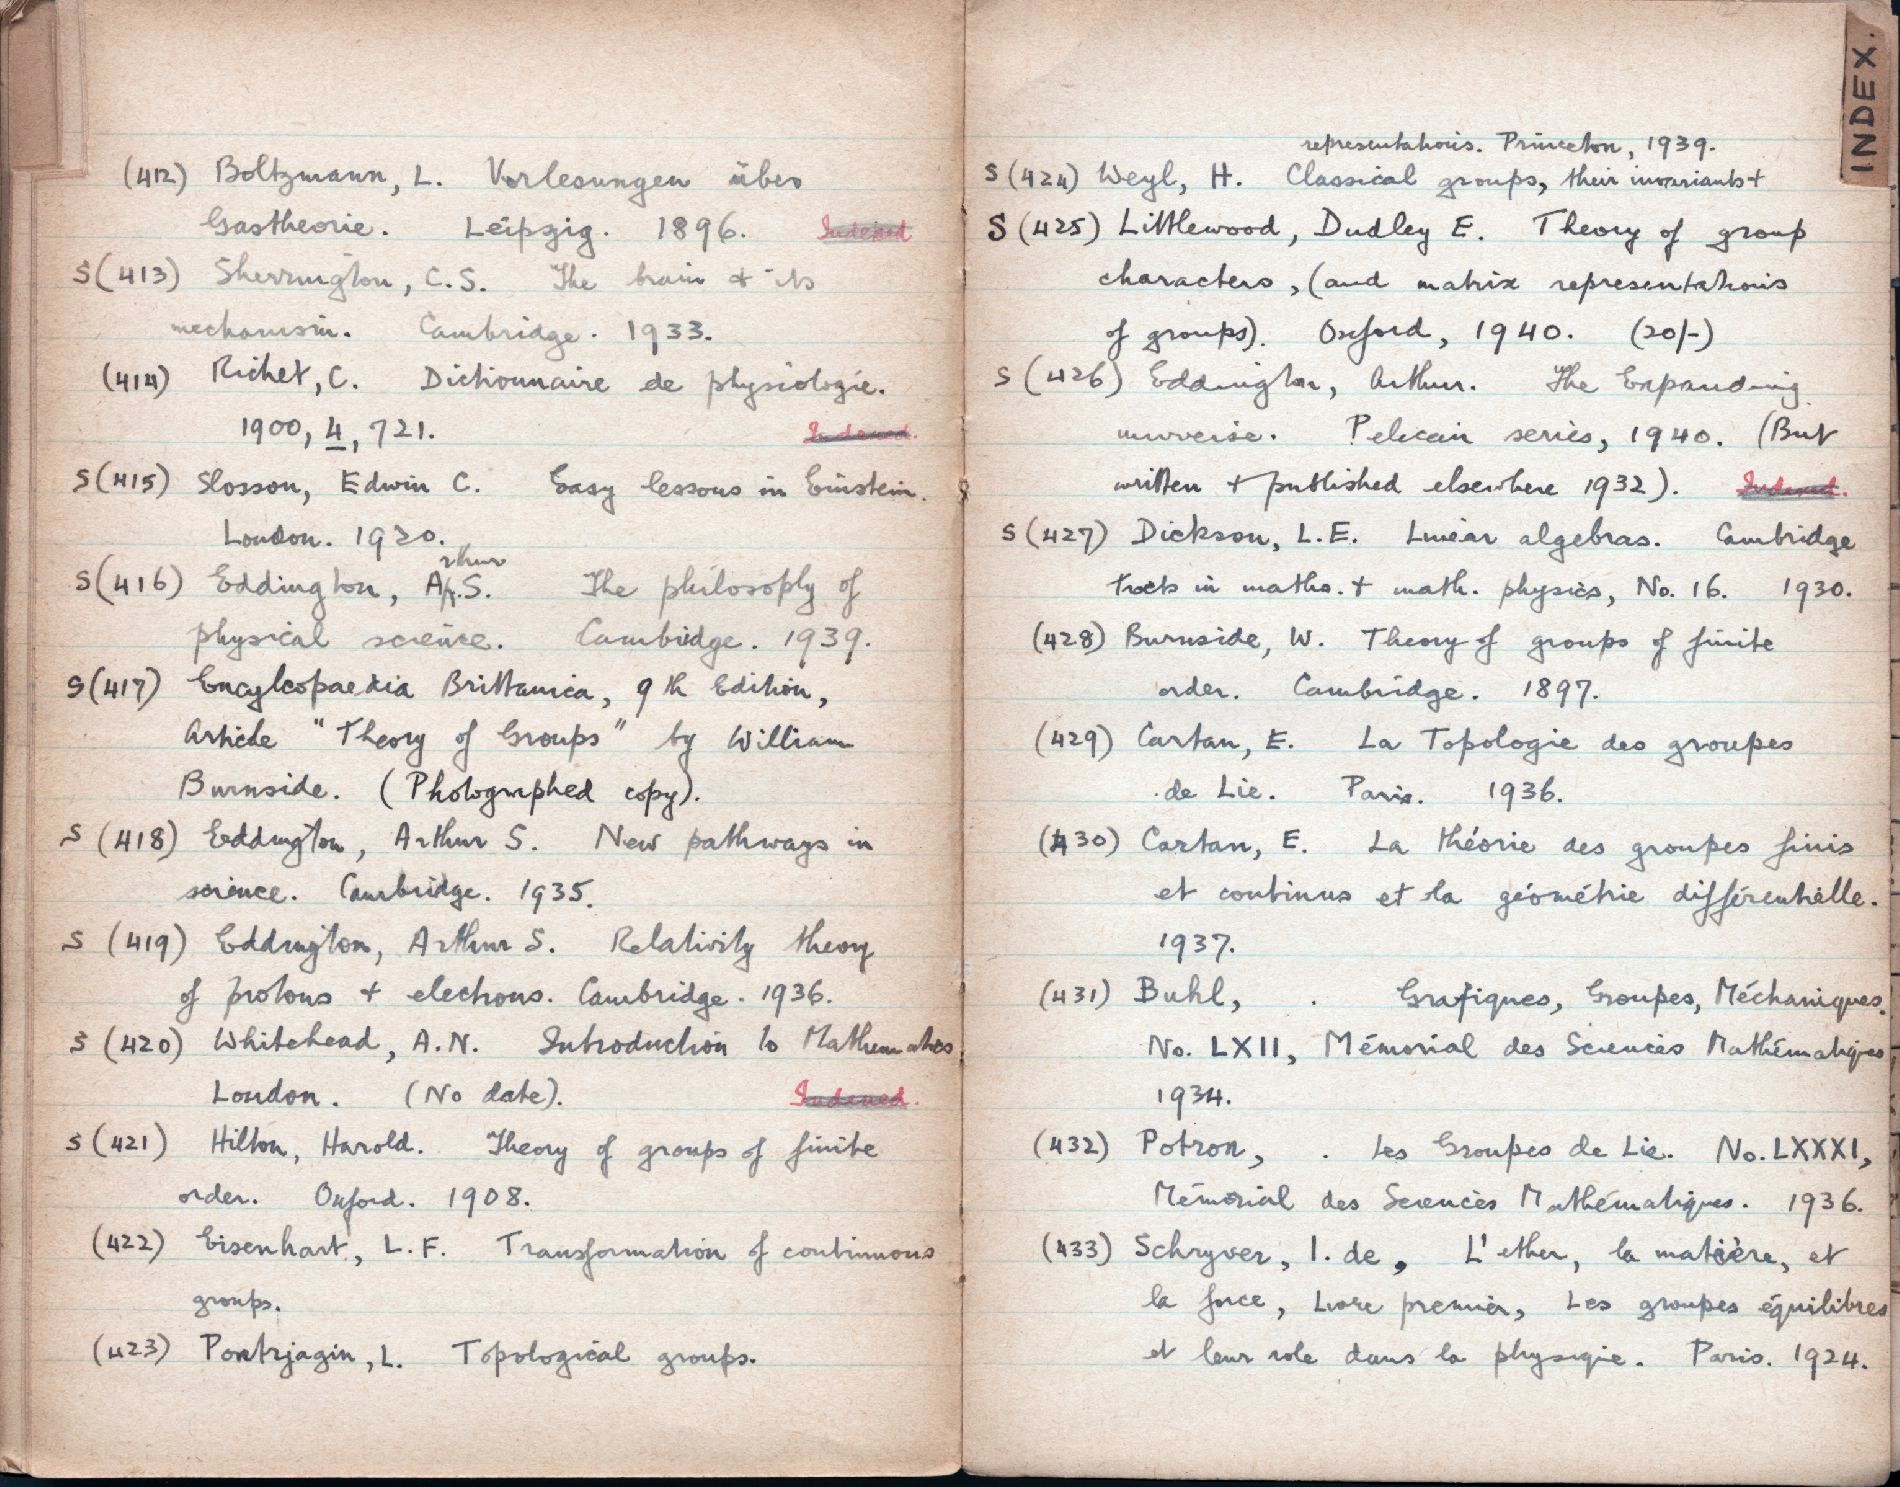 (412) Boltzmann, L. Vorlesungen über
Gastheorie. Leipzig. 1896. Indexed
S (413) Sherrington, C.S. The brain & its
mechanism. Cambridge. 1933.
(414) Richet, C. Dictionnaire de physiologie.
1900, 4, 721. Indexed.
S (415) Slosson, Edwin C. Easy lessons in Einstein.
London. 1920.
rthur
S (416) Eddington, A.S. The philosophy of
physical science. Cambridge. 1939.
S (417) Encylcopaedia Brittanica, 9th Edition,
Article "Theory of Groups" by William
Burnside. (Photographed copy).
S (418) Eddington, Arthur S. New pathways in
science. Cambridge. 1935.
S (419) Eddington, Arthur S. Relativity theory
of protons + electrons. Cambridge. 1936.
S (420) Whitehead, A.N. Introduction to Mathematics
London. (No date). Indexed.
S (421) Hilton, Harold. Theory of groups of finite
order. Oxford. 1908.
(422) Eisenhart, L.F. Transformation of continuous
groups.
(423) Pontrjagin, L. Topological groups.
INDEX.
representations. Princeton, 1939.
S (424) Weyl, H. Classical groups, their invariants +
S (425) Littlewood, Dudley E. Theory of group
characters, (and matrix representations
of groups). Oxford, 1940. (20/-)
S (426) Eddington, Arthur. The Expanding
universe. Pelican series, 1940. (But
written + published elsewhere 1932). Indexed.
S (427) Dickson, L.E. Linear algebras. Cambridge
tracts in maths. + math. physics, No. 16. 1930.
(428) Burnside, W. Theory of groups of finite
order. Cambridge. 1897.
(429) Cartan, E. La Topologie des groupes
de Lie. Paris. 1936.
(430) Cartan, E. La théorie des groupes finis
et continus et la géométrie différentielle.
1937.
(431) Buhl, . Grafiques, Groupes, Méchaniques.
No. LXII, Mémorial des Sciences Mathématiques
1934.
(432) Potron, . Les Groupes de Lie. No. LXXXI,
Mémorial des Sciences Mathématiques. 1936.
(433) Schryver, I. de, L'ether, la matière, et
la force, Livre premier, Les groupes équilibres
et leur role dans la physique. Paris. 1924.